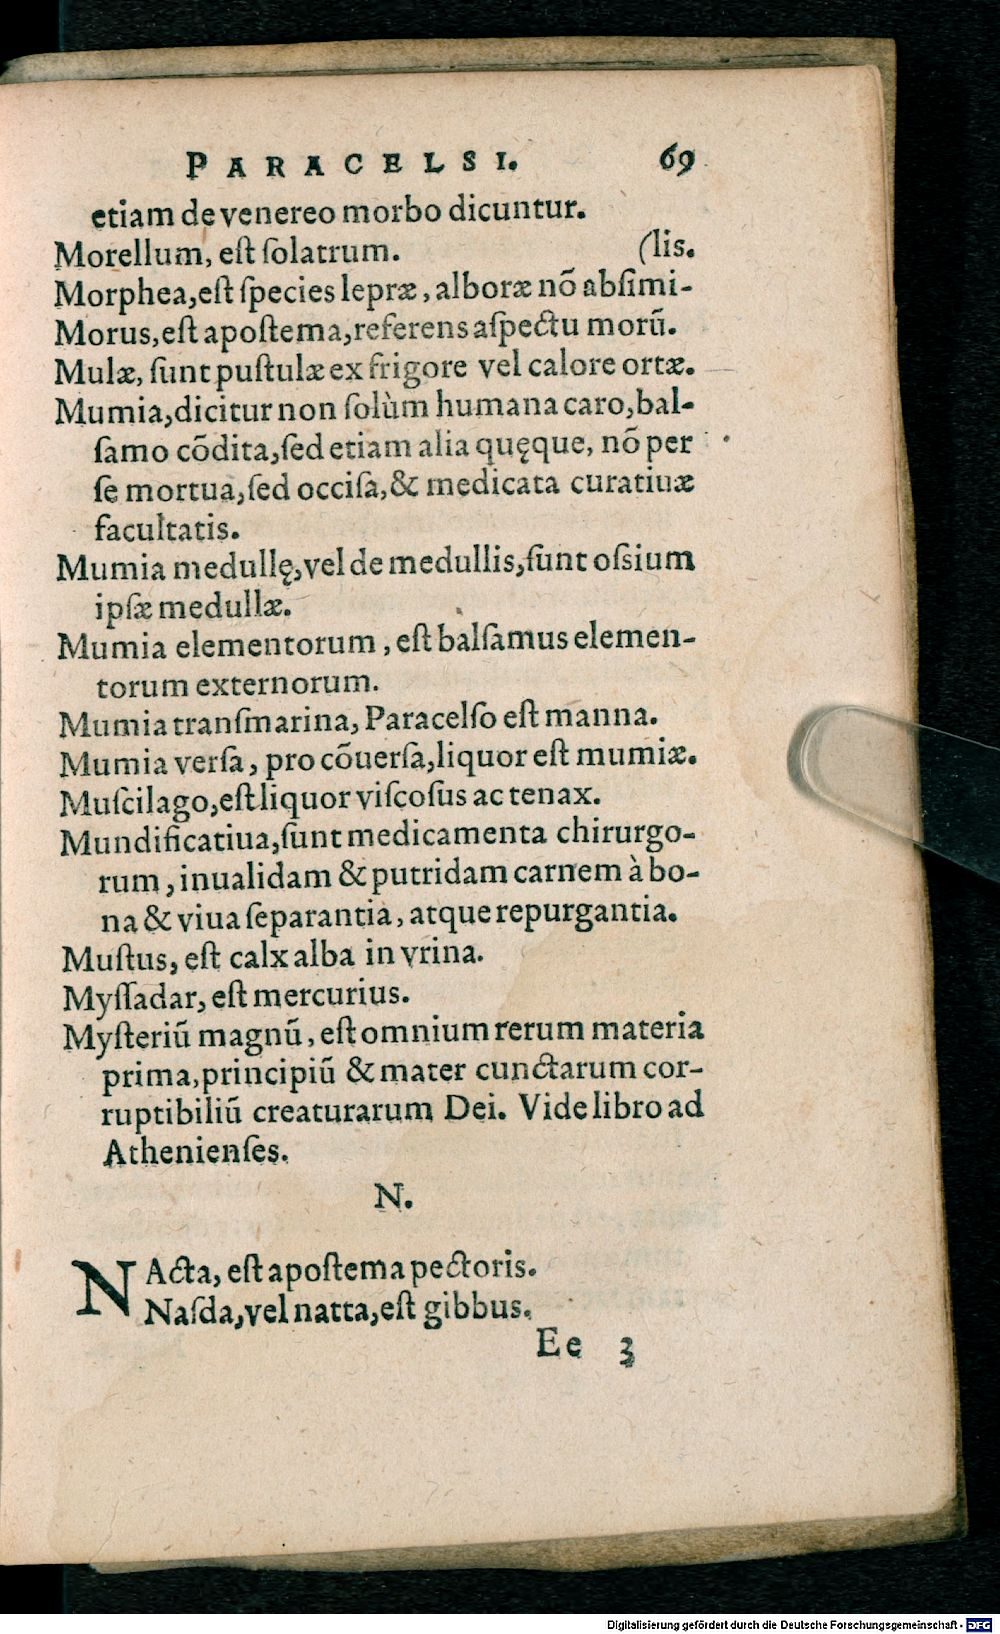 PARACELSI. 69
etiam de venereo morbo dicuntur.
Morellum, est ſolatrum. (lis.
Morphea, est ſpecies lepræ, alboræ nõ abſimi-
Morus, est apostema, referens aſpectu morũ.
Mulæ, ſunt pustulæ ex frigore vel calore ortæ.
Mumia, dicitur non ſolùm humana caro, bal-
ſamo cõdita, ſed etiam alia quęque, nõ per
ſe mortua, ſed occiſa, & medicata curatiuæ
facultatis.
Mumia medullę, vel de medullis, ſunt oſsium
ipſæ medullæ.
Mumia elementorum, est balſamus elemen-
torum externorum.
Mumia tranſmarina, Paracelſo est manna.
Mumia verſa, pro cõuerſa, liquor est mumiæ.
Muſcilago, est liquor viſcoſus ac tenax.
Mundificatiua, ſunt medicamenta chirurgo-
rum, inualidam & putridam carnem à bo-
na & viua ſeparantia, atque repurgantia.
Mustus, est calx alba in vrina.
Myſſadar, est mercurius.
Mysteriũ magnũ, est omnium rerum materia
prima, principiũ & mater cunctarum cor-
ruptibiliũ creaturarum Dei. Vide libro ad
Athenienſes.
N.
NActa, est apostema pectoris.
Naſda, vel natta, est gibbus.
Ee 3
Digitalisierung gefördert durch die Deutsche Forschungsgemeinschaft - DFG